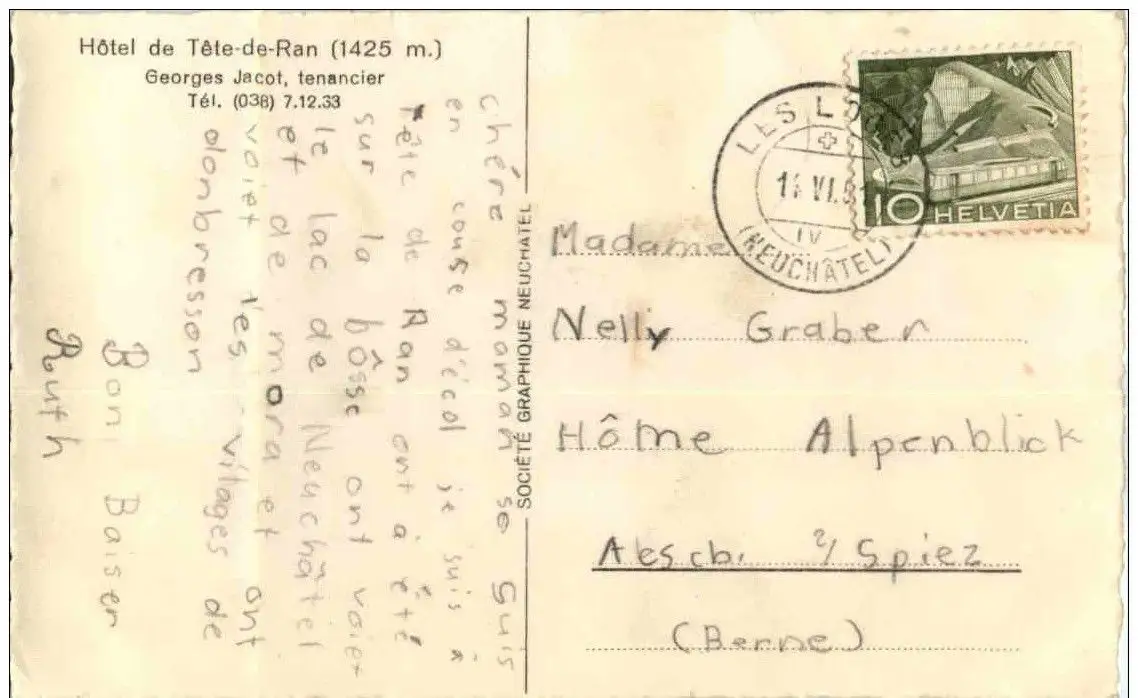 Hôtel de Tête-de-Ran (1425 m.)
Georges Jacot, tenancier
Tél. (038) 7.12.33
chére maman se suis
en couse d'écol je suis à
Tête de Ran ont à été
sur la bôsse ont voiet
le lac de Neuchâtel
et de mora et ont
voiet les villages de
donbresson
Bon Baiser
Ruth
SOCIÉTÉ GRAPHIQUE NEUCHATEL
LES LOGES
VI.5
IV
(NEUCHÂTEL)
10 HELVETIA
Madame
Nelly Graber
Hôme Alpenblick
Aeschi s/ Spiez
(Berne)